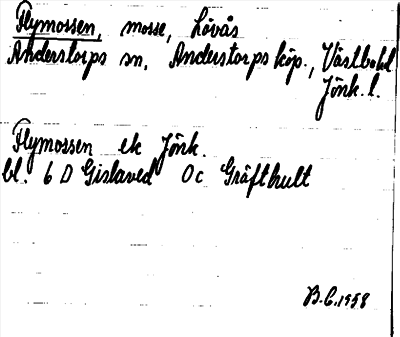 Flymossen, mosse, Lövås
Anderstorps sn, Anderstorps köp., Västbo hd
Jönk. l.
Flymossen ek Jönk.
bl. 6 D Gislaved 0c Gräfthult
B.C. 1958